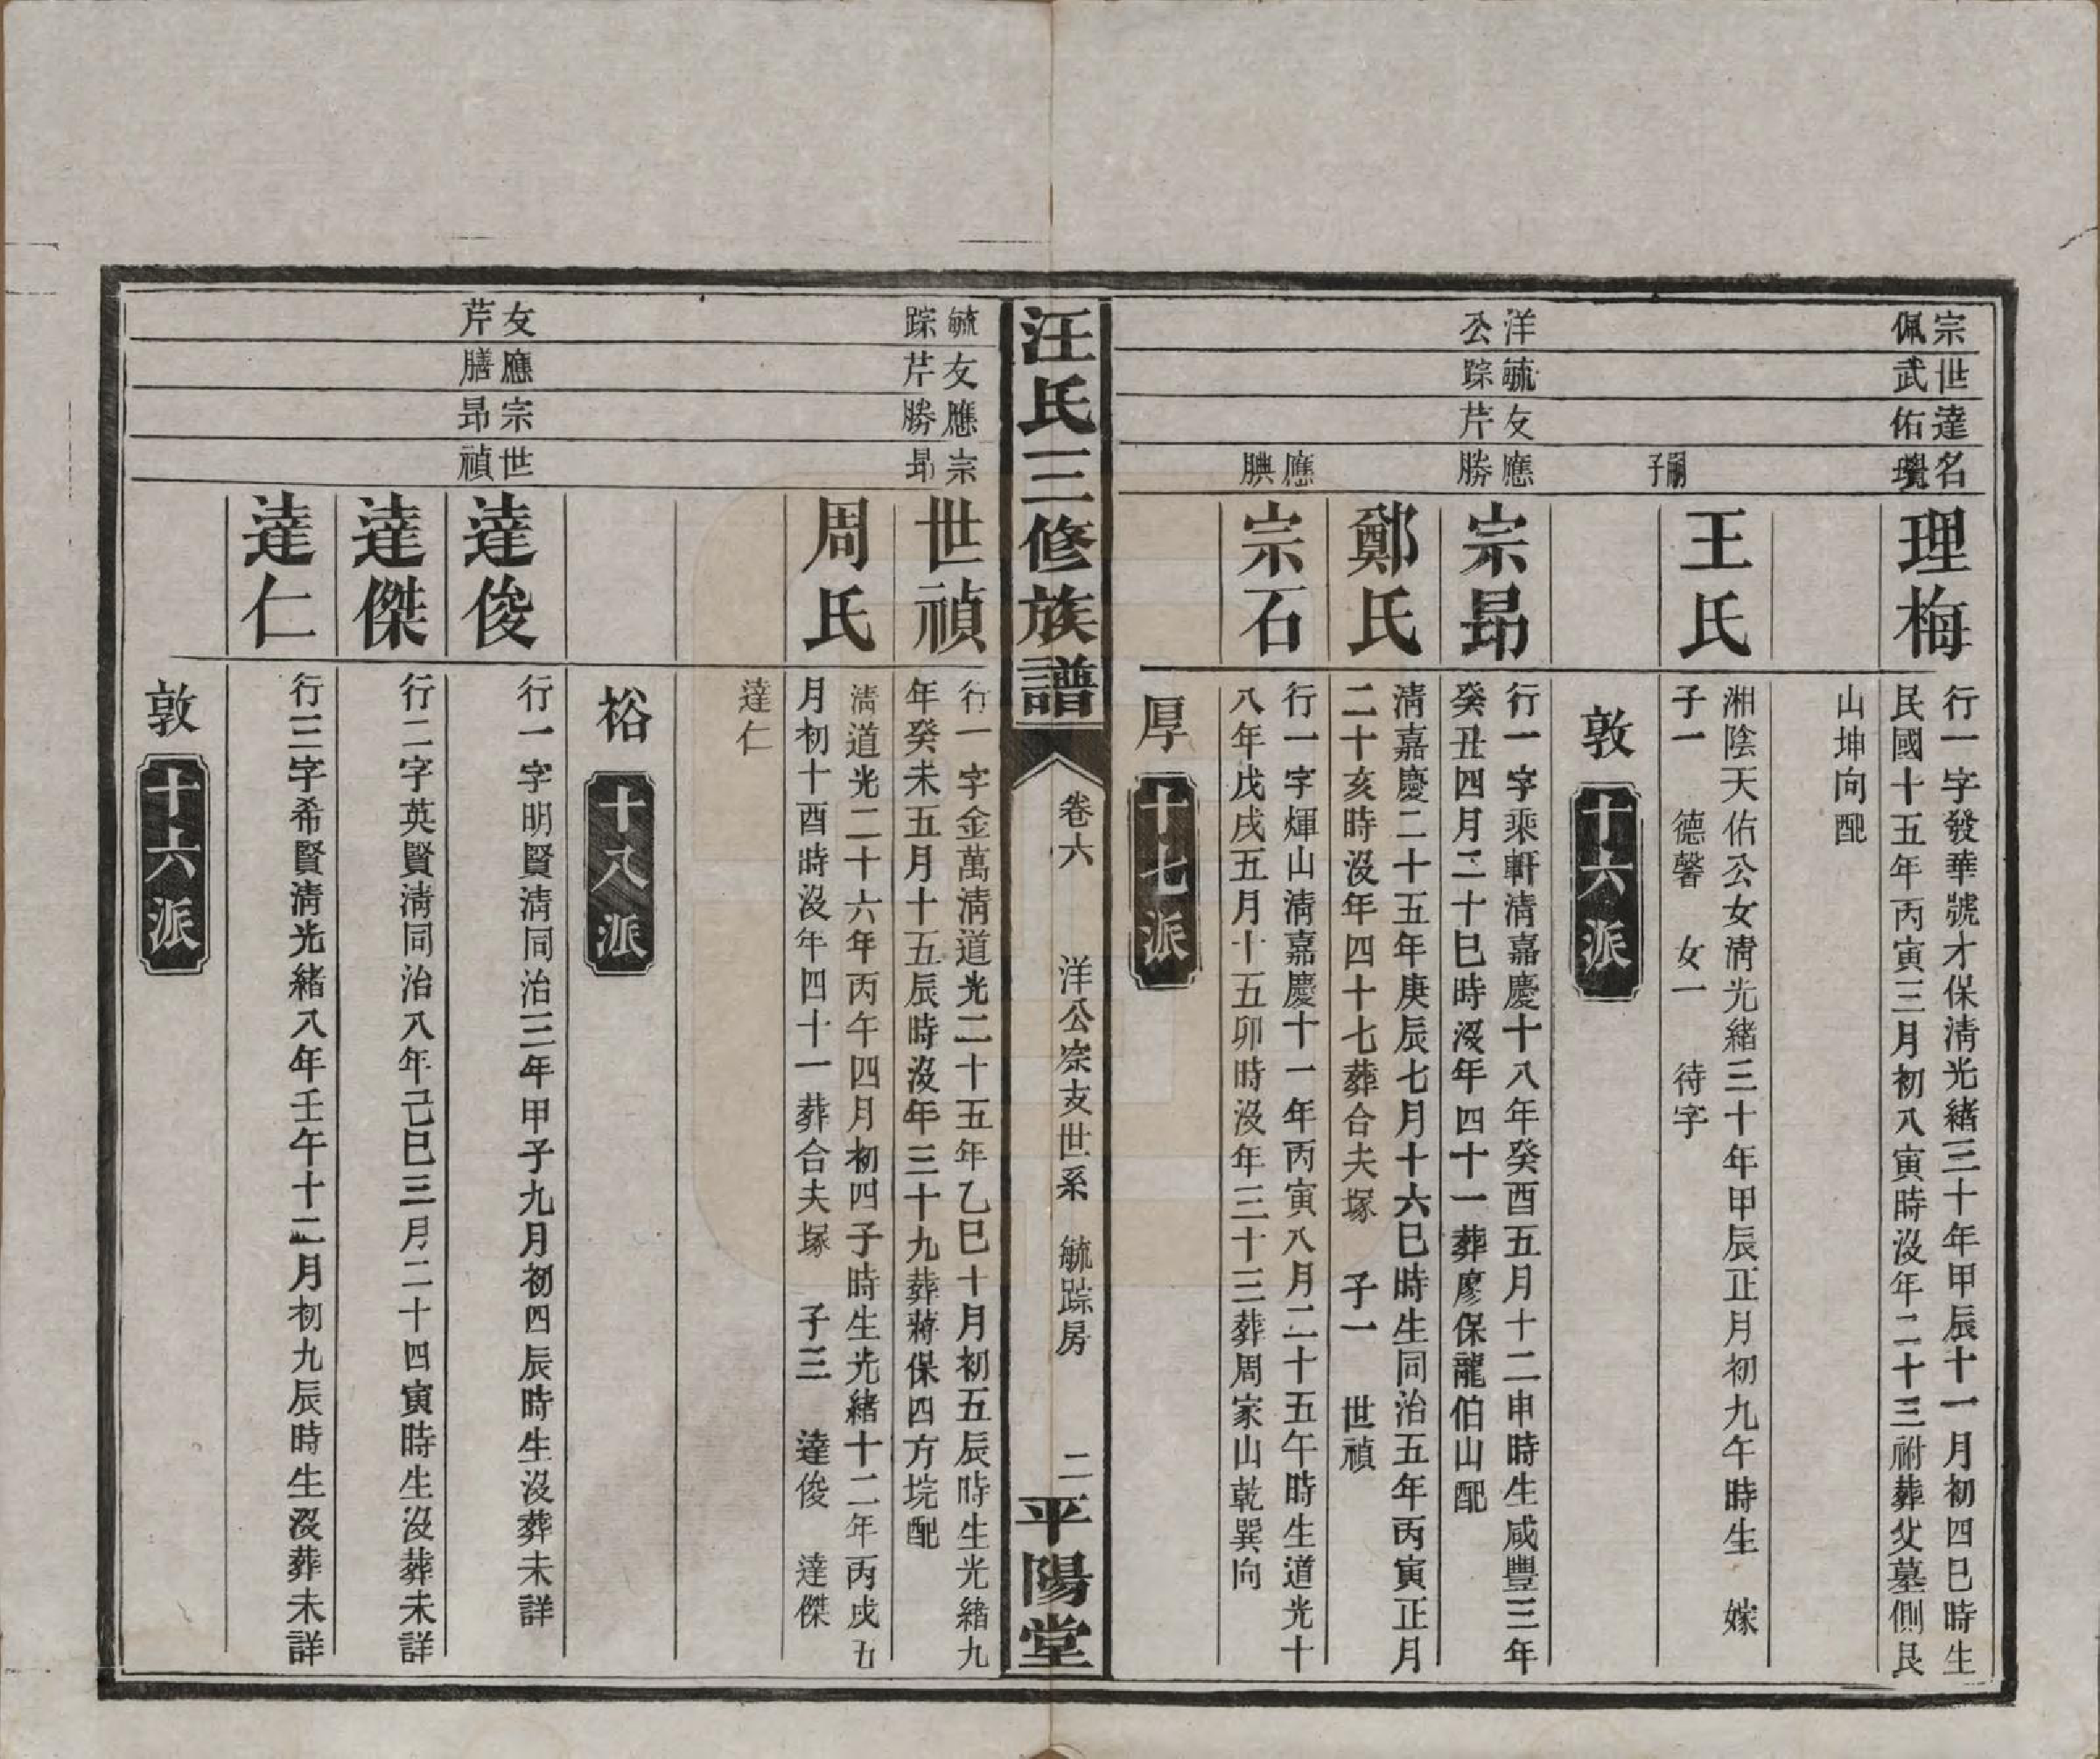 宗佩
世武
達佑
名璣
理梅
行一字發華號才保淸光緖三十年甲辰十一月初四巳時生
民國十五年丙寅三月初八寅時沒年二十三祔葬父墓側艮
山坤向配
嗣子
王氏
湘陰天佑公女淸光緖三十年甲辰正月初九午時生　嫁
子一　德馨　女一　待字
敦　十六派
洋公
毓踪
友芹
應勝
宗昻
行一字乘軒淸嘉慶十八年癸酉五月十二申時生咸豐三年
癸丑四月二十巳時沒年四十一葬廖保龍伯山配
鄭氏
淸嘉慶二十五年庚辰七月十六巳時生同治五年丙寅正月
二十亥時沒年四十七葬合夫塚　子一　世禎
應腆
宗石
行一字煇山淸嘉慶十一年丙寅八月二十五午時生道光十
八年戊戌五月十五卯時沒年三十三葬周家山乾巽向
厚　十七派
汪氏三修族譜
卷六　洋公宗支世系　毓踪房　二
平陽堂
毓踪
友芹
應勝
宗昻
世禎
行一字金萬淸道光二十五年乙巳十月初五辰時生光緖九
年癸未五月十五辰時沒年三十九葬蔣保四方垸配
周氏
淸道光二十六年丙午四月初四子時生光緖十二年丙戌五
月初十酉時沒年四十一葬合夫塚　子三　達俊　達傑
達仁
裕　十八派
友芹
應膳
宗昻
世禎
達俊
行一字明賢淸同治三年甲子九月初四辰時生沒葬未詳
達傑
行二字英賢淸同治八年己巳三月二十四寅時生沒葬未詳
達仁
行三字希賢淸光緖八年壬午十二月初九辰時生沒葬未詳
敦　十六派